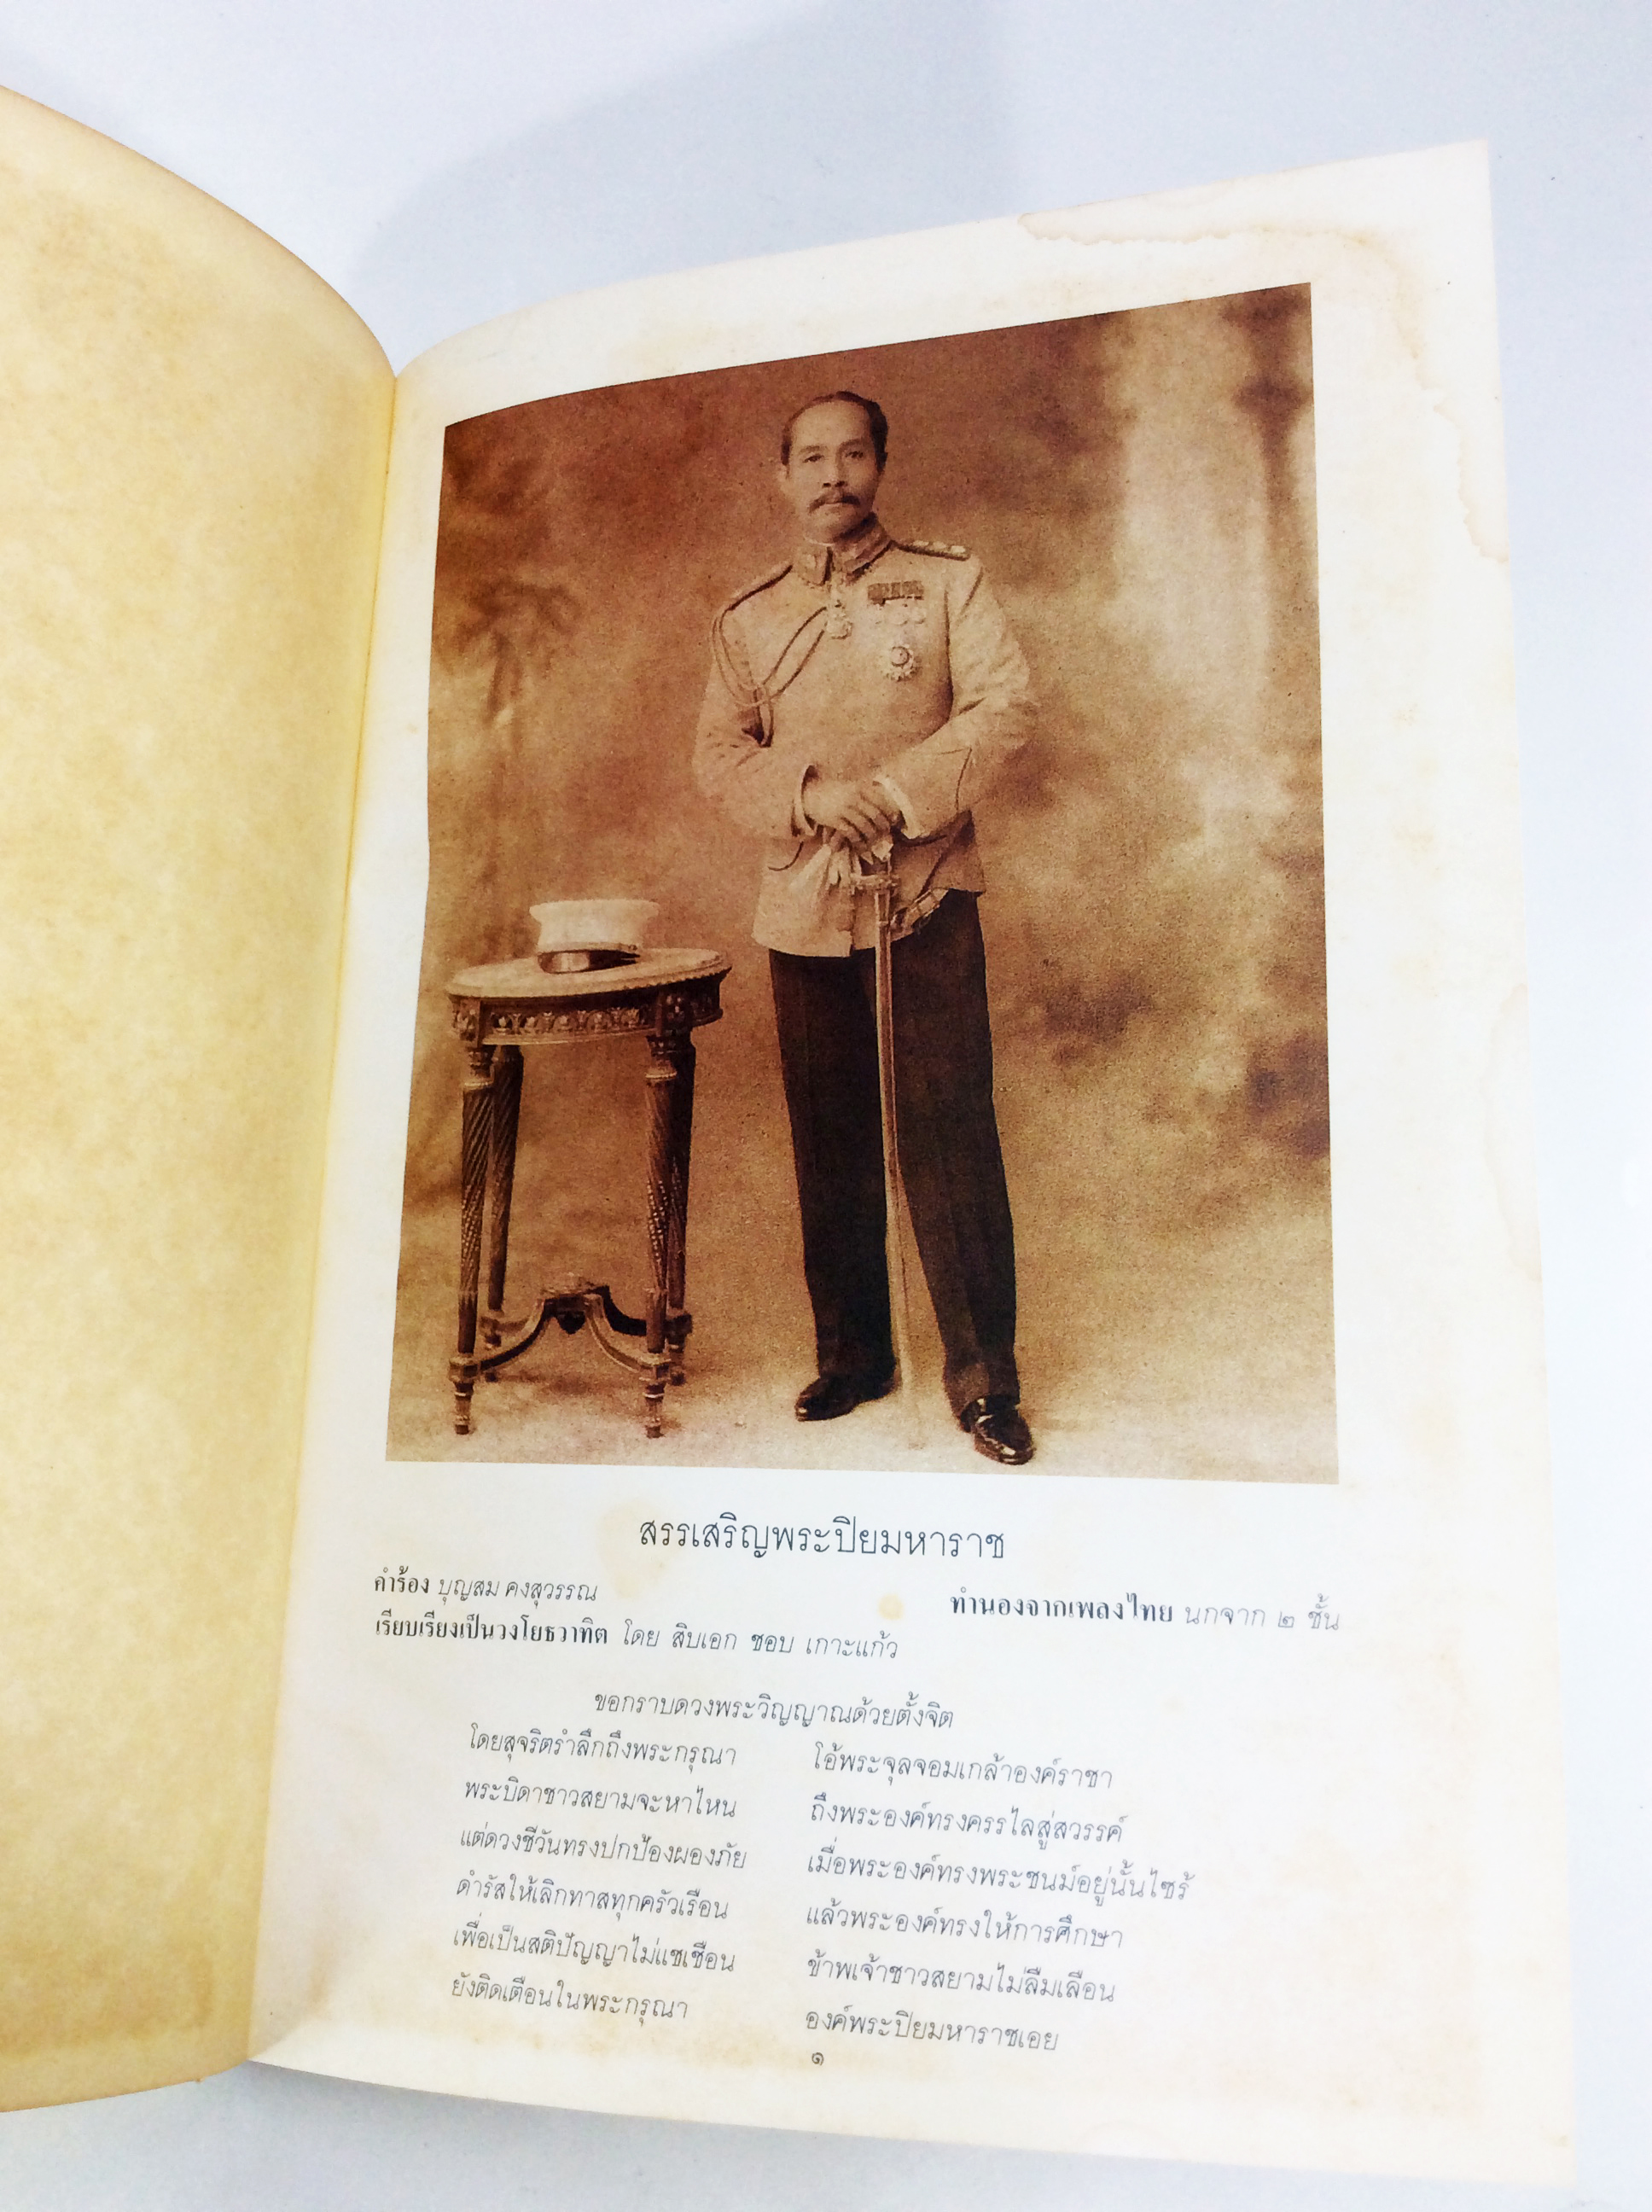 สรรเสริญพระปิยมหาราช
คำร้อง บุญสม คงสุวรรณ
ทำนองจากเพลงไทย นกจาก ๒ ชั้น
เรียบเรียงเป็นวงโยธวาทิต โดย สิบเอก ชอบ เกาะแก้ว
ขอกราบดวงพระวิญญาณด้วยตั้งจิต
โดยสุจริตรำลึกถึงพระกรุณา โอ้พระจุลจอมเกล้าองค์ราชา
พระบิดาชาวสยามจะหาไหน ถึงพระองค์ทรงครรไลสู่สวรรค์
แต่ดวงชีวันทรงปกป้องผองภัย เมื่อพระองค์ทรงพระชนม์อยู่นั้นไซร้
ดำรัสให้เลิกทาสทุกครัวเรือน แล้วพระองค์ทรงให้การศึกษา
เพื่อเป็นสติปัญญาไม่แชเชือน ข้าพเจ้าชาวสยามไม่ลืมเลือน
ยังติดเตือนในพระกรุณา องค์พระปิยมหาราชเอย
๑